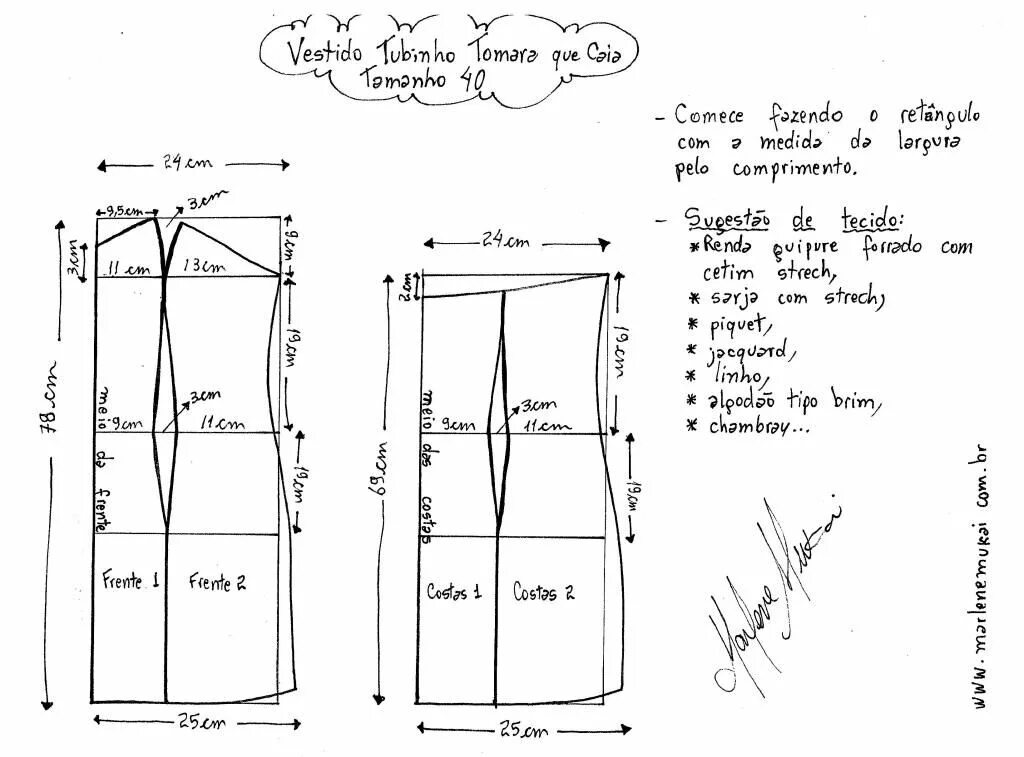 Vestido Tubinho Tomara que Caia
Tamanho 40
- Comece fazendo o retângulo
com a medida da largura
pelo comprimento.
- Sugestão de tecido:
* Renda guipure forrado com
cetim strech,
* sarja com strech,
* piquet,
* jacquard,
* linho,
* algodão tipo brim,
* chambray...
24 cm
9,5cm
3 cm
3 cm
9 cm
11 cm
13 cm
19 cm
78 cm
3 cm
9 cm
11 cm
19 cm
meio da frente
Frente 1
Frente 2
25 cm
24 cm
2 cm
19 cm
69 cm
3 cm
9 cm
11 cm
19 cm
meio das costas
Costas 1
Costas 2
25 cm
Marlene Mukai
www.marlenemukai com.br